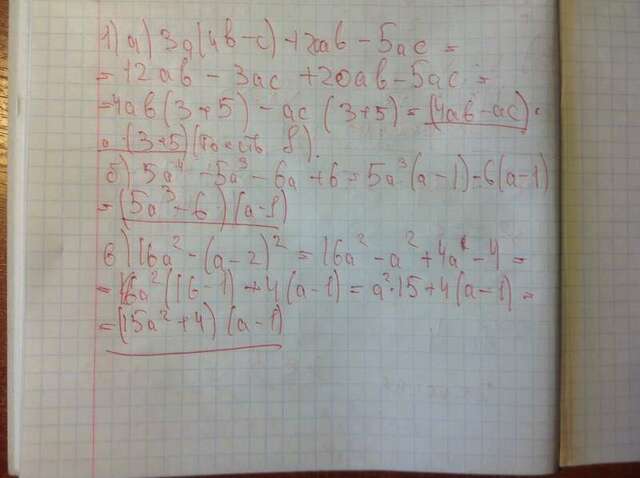 1) а) 3a(4b-c) + 20ab - 5ac =
= 12ab - 3ac + 20ab - 5ac =
= 4ab(3+5) - ac(3+5) = (4ab-ac)·
· (3+5) (то есть 8).
б) 5a⁴ - 5a³ - 6a + 6 = 5a³(a-1) - 6(a-1)
= (5a³-6)(a-1)
в) 16a² - (a-2)² = 16a² - a² + 4a - 4 =
= a²(16-1) + 4(a-1) = a²·15 + 4(a-1) =
= (15a²+4)(a-1)